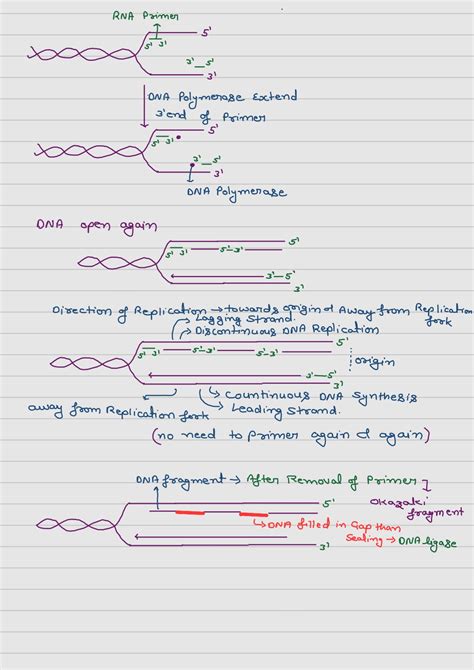 RNA Primer
5'
5' 3'
3' 5'
3'
DNA Polymerase Extend
3' end of Primer
5'
5' 3'
3' 5'
3'
DNA Polymerase
DNA open again
5'
5' 3' 5'-3'
3'-5'
3'
Direction of Replication → towards origin & Away from Replication fork
Lagging Strand.
Discontinuous DNA Replication
5'
5' 3' 5'-3' 5'-3'
origin
3'-5'
3'
Countinuous DNA Synthesis
away from Replication fork
Leading Strand.
(no need to primer again & again)
DNA fragment → After Removal of Primer
5'
Okazaki fragment
DNA filled in Gap than
Sealing → DNA ligase
3'